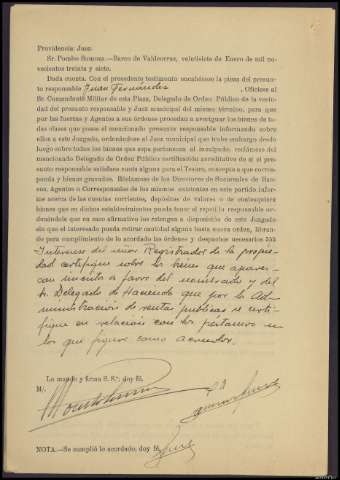 Providencia Juez.
Sr. Pombo Somoza.—Barco de Valdeorras, veintisiete de Enero de mil no-
vecientos treinta y siete.
Dada cuenta. Con el precedente testimonio encabécese la pieza del presun-
to responsable Juan Fernández, Ofíciese al
Sr. Comandante Militar de esta Plaza, Delegado de Orden Público de la vecin-
dad del presunto responsable y Juez municipal del mismo término, para que
por las fuerzas y Agentes a sus órdenes procedan a averiguar los bienes de to-
das clases que posea el mencionado presunto responsable informando sobre
ellos a este Juzgado, ordenándose al Juez municipal que trabe embargo desde
luego sobre todos los bienes que sepa pertenecen al inculpado, recábense del
mencionado Delegado de Orden Público certificación acreditativa de si el pre-
sunto responsable satisface cuota alguna para el Tesoro, concepto a que corres-
ponda y bienes gravados. Pídelanse de los Directores de Sucursales de Ban-
cos, Agentes o Corresponsales de los mismos existentes en este partido infor-
mes acerca de las cuentas corrientes, depósitos de valores o de contrapartes
bienes que en dichos establecimientos pueda tener el repetido responsable or-
denándoles que en caso afirmativo los retengan a disposición de este Juzgado
sin que el interesado pueda retirar cantidad alguna hasta nueva orden, librán-
dose para cumplimiento de lo acordado las órdenes y despachos necesarios
Interesese del señor Registrador de la propie-
dad certifique sobre los bienes que aparez-
can inscritos a favor del encartado y del
Sr. Delegado de Hacienda que por la Ad-
ministración de rentas públicas se certi-
fique en relación con los préstamos en
los que figure como acreedor.
Lo mandó y firma S. S.ª; doy fé.
M/.
NOTA.—Se cumplió lo acordado, doy fé.